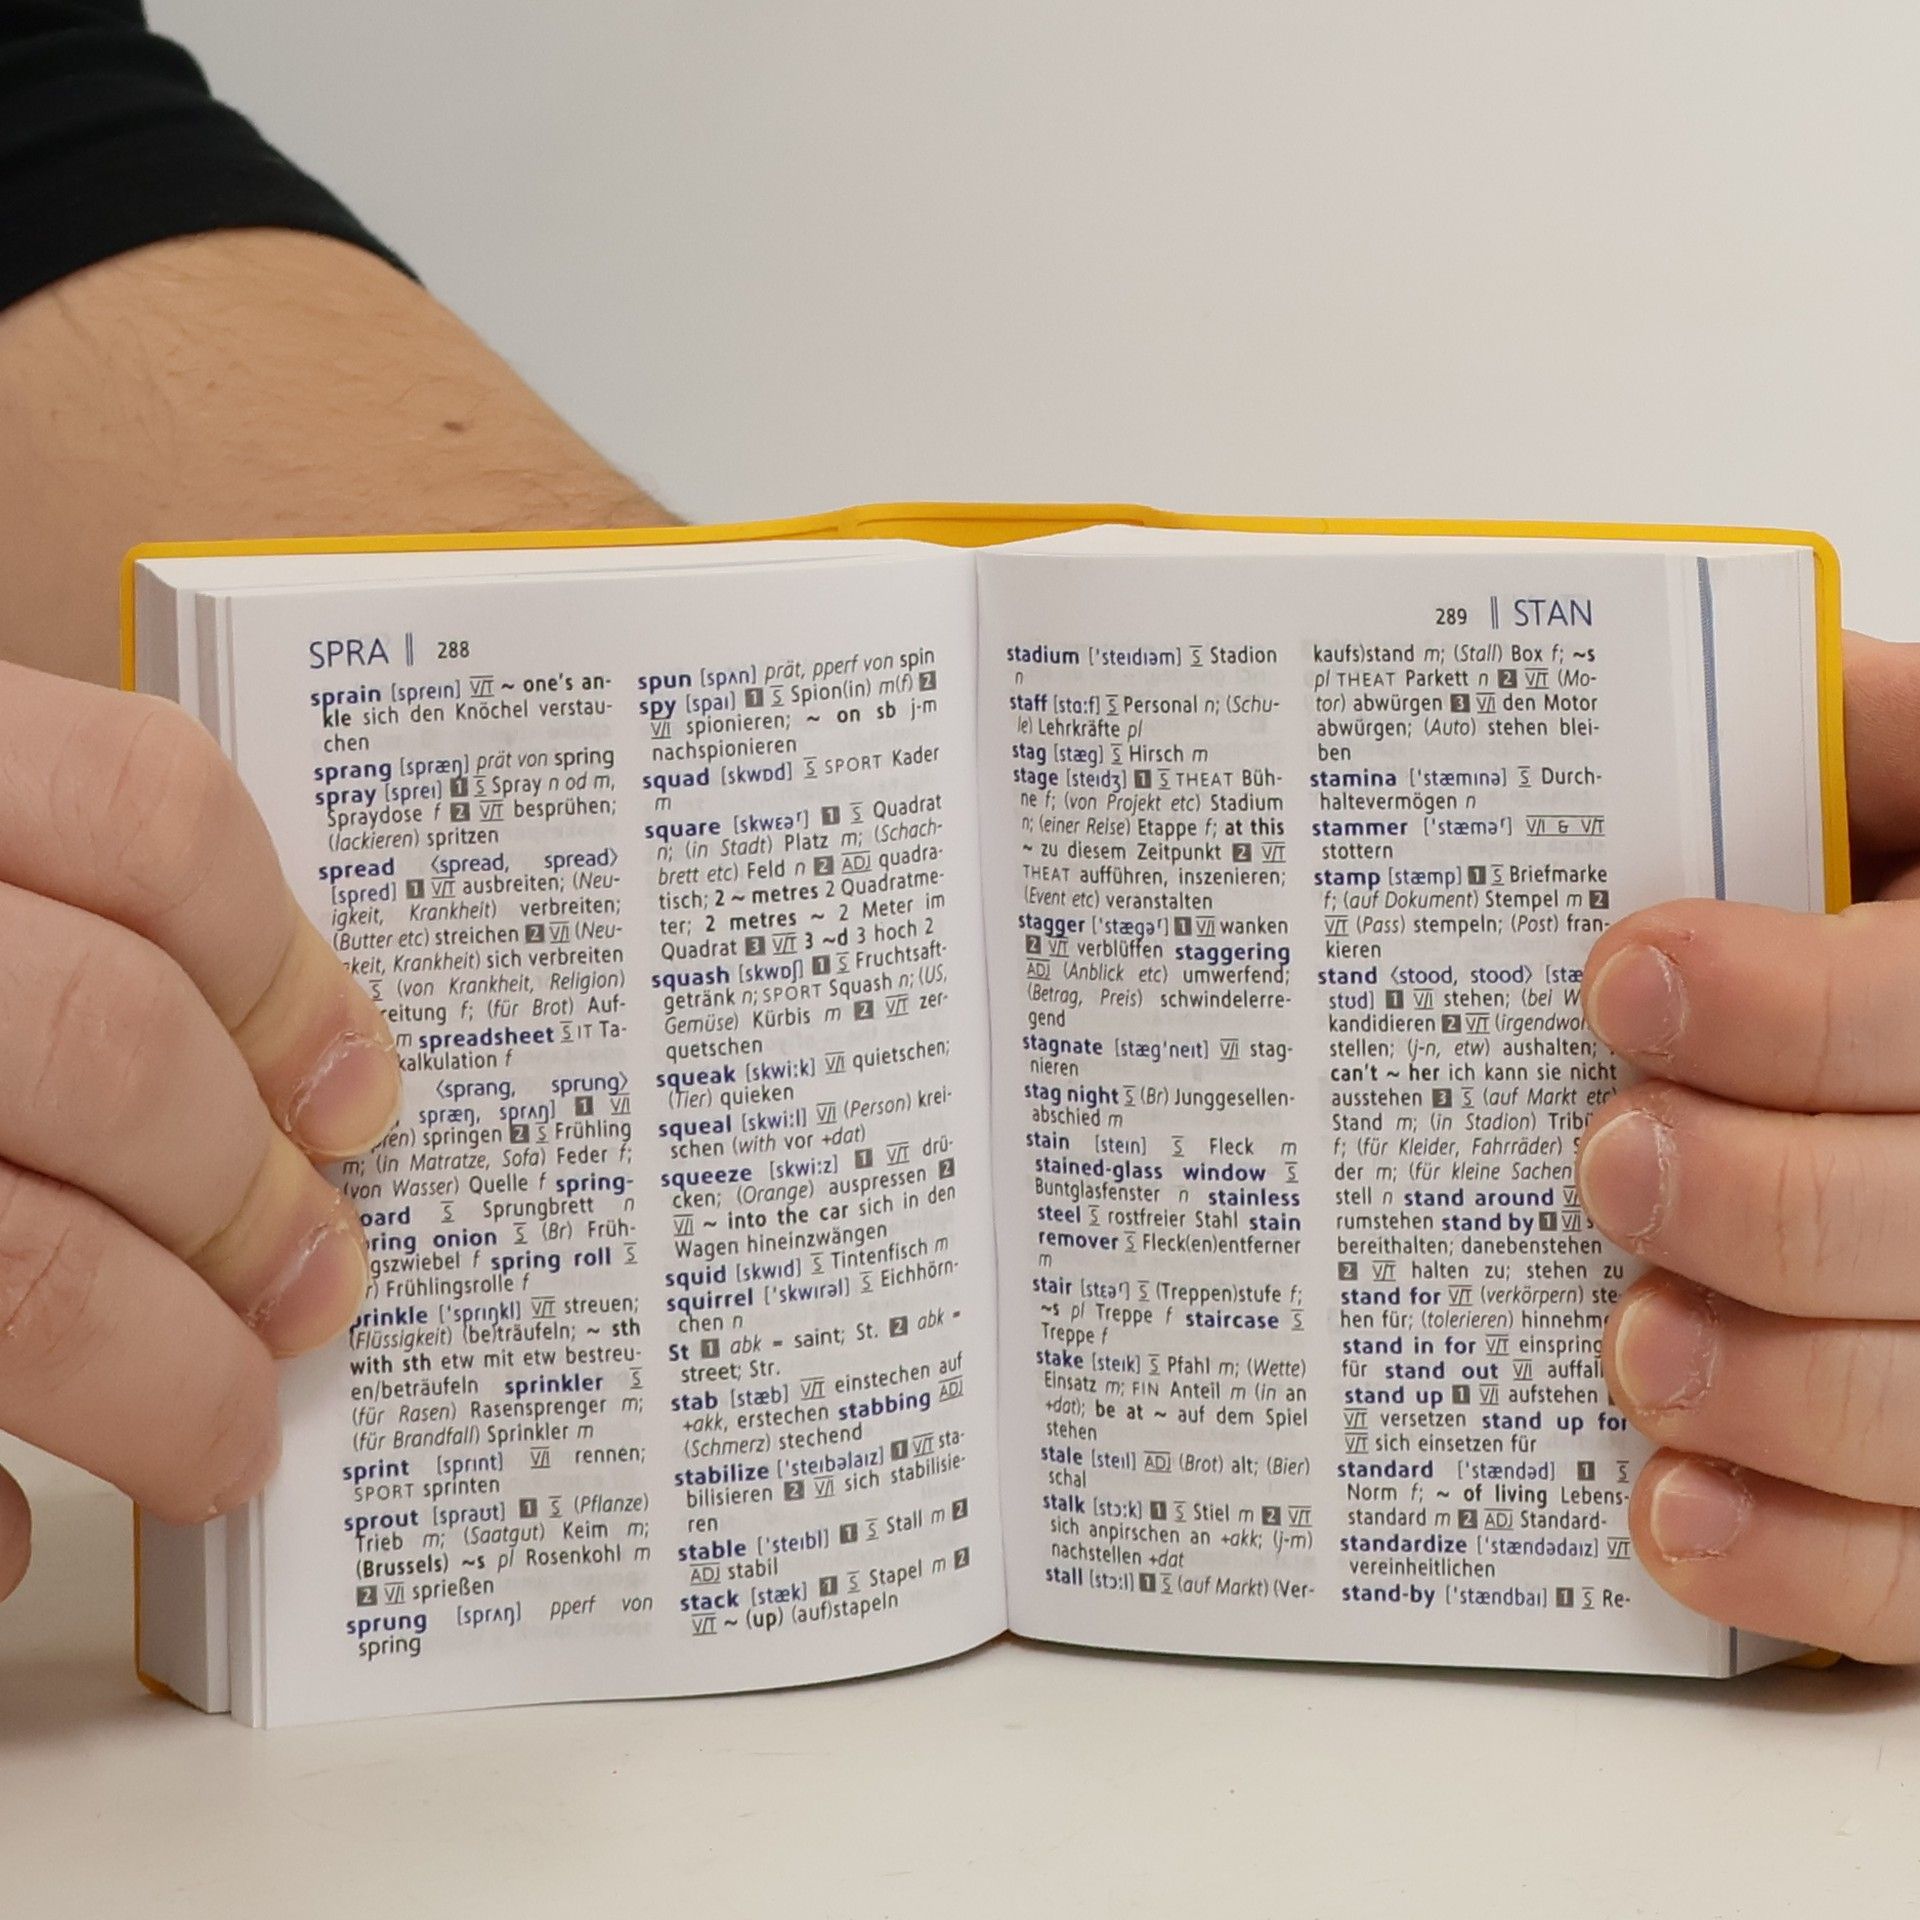 SPRA || 288
sprain [spreɪn] V/T ~ one's an-
kle sich den Knöchel verstau-
chen
sprang [spræŋ] prät von spring
spray [spreɪ] 1 S Spray n od m,
Spraydose f 2 V/T besprühen;
(lackieren) spritzen
spread ⟨spread, spread⟩
[spred] 1 V/T ausbreiten; (Neu-
igkeit, Krankheit) verbreiten;
(Butter etc) streichen 2 V/I (Neu-
Krankheit) sich verbreiten
S (von Krankheit, Religion)
f; (für Brot) Auf-
m spreadsheet S IT Ta-
f
⟨sprang, sprung⟩
spræŋ, sprʌŋ] 1 V/I
springen 2 S Frühling
m; (in Matratze, Sofa) Feder f;
(von Wasser) Quelle f spring-
S Sprungbrett n
onion S (Br) Früh-
f spring roll S
Frühlingsrolle f
['sprɪŋkl] V/T streuen;
(Flüssigkeit) (be)träufeln; ~ sth
with sth etw mit etw bestreu-
en/beträufeln sprinkler S
(für Rasen) Rasensprenger m;
(für Brandfall) Sprinkler m
sprint [sprɪnt] V/I rennen;
SPORT sprinten
sprout [spraʊt] 1 S (Pflanze)
Trieb m; (Saatgut) Keim m;
(Brussels) ~s pl Rosenkohl m
2 V/I sprießen
sprung [sprʌŋ] pperf von
spring
spun [spʌn] prät, pperf von spin
spy [spaɪ] 1 S Spion(in) m(f) 2
V/I spionieren; ~ on sb j-m
nachspionieren
squad [skwɒd] S SPORT Kader
m
square [skwɛəʳ] 1 S Quadrat
n; (in Stadt) Platz m; (Schach-
brett etc) Feld n 2 ADJ quadra-
tisch; 2 ~ metres 2 Quadratme-
ter; 2 metres ~ 2 Meter im
Quadrat 3 V/T 3 ~d 3 hoch 2
squash [skwɒʃ] 1 S Fruchtsaft-
getränk n; SPORT Squash n; (US,
Gemüse) Kürbis m 2 V/T zer-
quetschen
squeak [skwiːk] V/I quietschen;
(Tier) quieken
squeal [skwiːl] V/I (Person) krei-
schen (with vor +dat)
squeeze [skwiːz] 1 V/T drü-
cken; (Orange) auspressen 2
V/I ~ into the car sich in den
Wagen hineinzwängen
squid [skwɪd] S Tintenfisch m
squirrel ['skwɪrəl] S Eichhörn-
chen n
St 1 abk = saint; St. 2 abk =
street; Str.
stab [stæb] V/T einstechen auf
+akk, erstechen stabbing ADJ
(Schmerz) stechend
stabilize ['steɪbəlaɪz] 1 V/T sta-
bilisieren 2 V/I sich stabilisie-
ren
stable ['steɪbl] 1 S Stall m 2
ADJ stabil
stack [stæk] 1 S Stapel m 2
V/T ~ (up) (auf)stapeln
289 || STAN
stadium ['steɪdɪəm] S Stadion
n
staff [stɑːf] S Personal n; (Schu-
le) Lehrkräfte pl
stag [stæg] S Hirsch m
stage [steɪdʒ] 1 S THEAT Büh-
ne f; (von Projekt etc) Stadium
n; (einer Reise) Etappe f; at this
~ zu diesem Zeitpunkt 2 V/T
THEAT aufführen, inszenieren;
(Event etc) veranstalten
stagger ['stægəʳ] 1 V/I wanken
2 V/T verblüffen staggering
ADJ (Anblick etc) umwerfend;
(Betrag, Preis) schwindelerre-
gend
stagnate [stæg'neɪt] V/I stag-
nieren
stag night S (Br) Junggesellen-
abschied m
stain [steɪn] S Fleck m
stained-glass window S
Buntglasfenster n stainless
steel S rostfreier Stahl stain
remover S Fleck(en)entferner
m
stair [stɛəʳ] S (Treppen)stufe f;
~s pl Treppe f staircase S
Treppe f
stake [steɪk] S Pfahl m; (Wette)
Einsatz m; FIN Anteil m (in an
+dat); be at ~ auf dem Spiel
stehen
stale [steɪl] ADJ (Brot) alt; (Bier)
schal
stalk [stɔːk] 1 S Stiel m 2 V/T
sich anpirschen an +akk; (j-m)
nachstellen +dat
stall [stɔːl] 1 S (auf Markt) (Ver-
kaufs)stand m; (Stall) Box f; ~s
pl THEAT Parkett n 2 V/T (Mo-
tor) abwürgen 3 V/I den Motor
abwürgen; (Auto) stehen blei-
ben
stamina ['stæmɪnə] S Durch-
haltevermögen n
stammer ['stæməʳ] V/I & V/T
stottern
stamp [stæmp] 1 S Briefmarke
f; (auf Dokument) Stempel m 2
V/T (Pass) stempeln; (Post) fran-
kieren
stand ⟨stood, stood⟩
stʊd] 1 V/I stehen; (bei
kandidieren 2 V/T
stellen; (j-n, etw) aushalten;
can't ~ her ich kann sie nicht
ausstehen 3 S (auf Markt etc)
Stand m; (in Stadion)
f; (für Kleider, Fahrräder)
der m; (für kleine Sachen
stell n stand around
rumstehen stand by 1 V/I
bereithalten; danebenstehen
2 V/T halten zu; stehen zu
stand for V/T (verkörpern) ste-
hen für; (tolerieren)
stand in for V/T
für stand out V/I
stand up 1 V/I aufstehen
V/T versetzen stand up for
V/T sich einsetzen für
standard ['stændəd] 1 S
Norm f; ~ of living Lebens-
standard m 2 ADJ Standard-
standardize ['stændədaɪz] V/T
vereinheitlichen
stand-by ['stændbaɪ] 1 S Re-